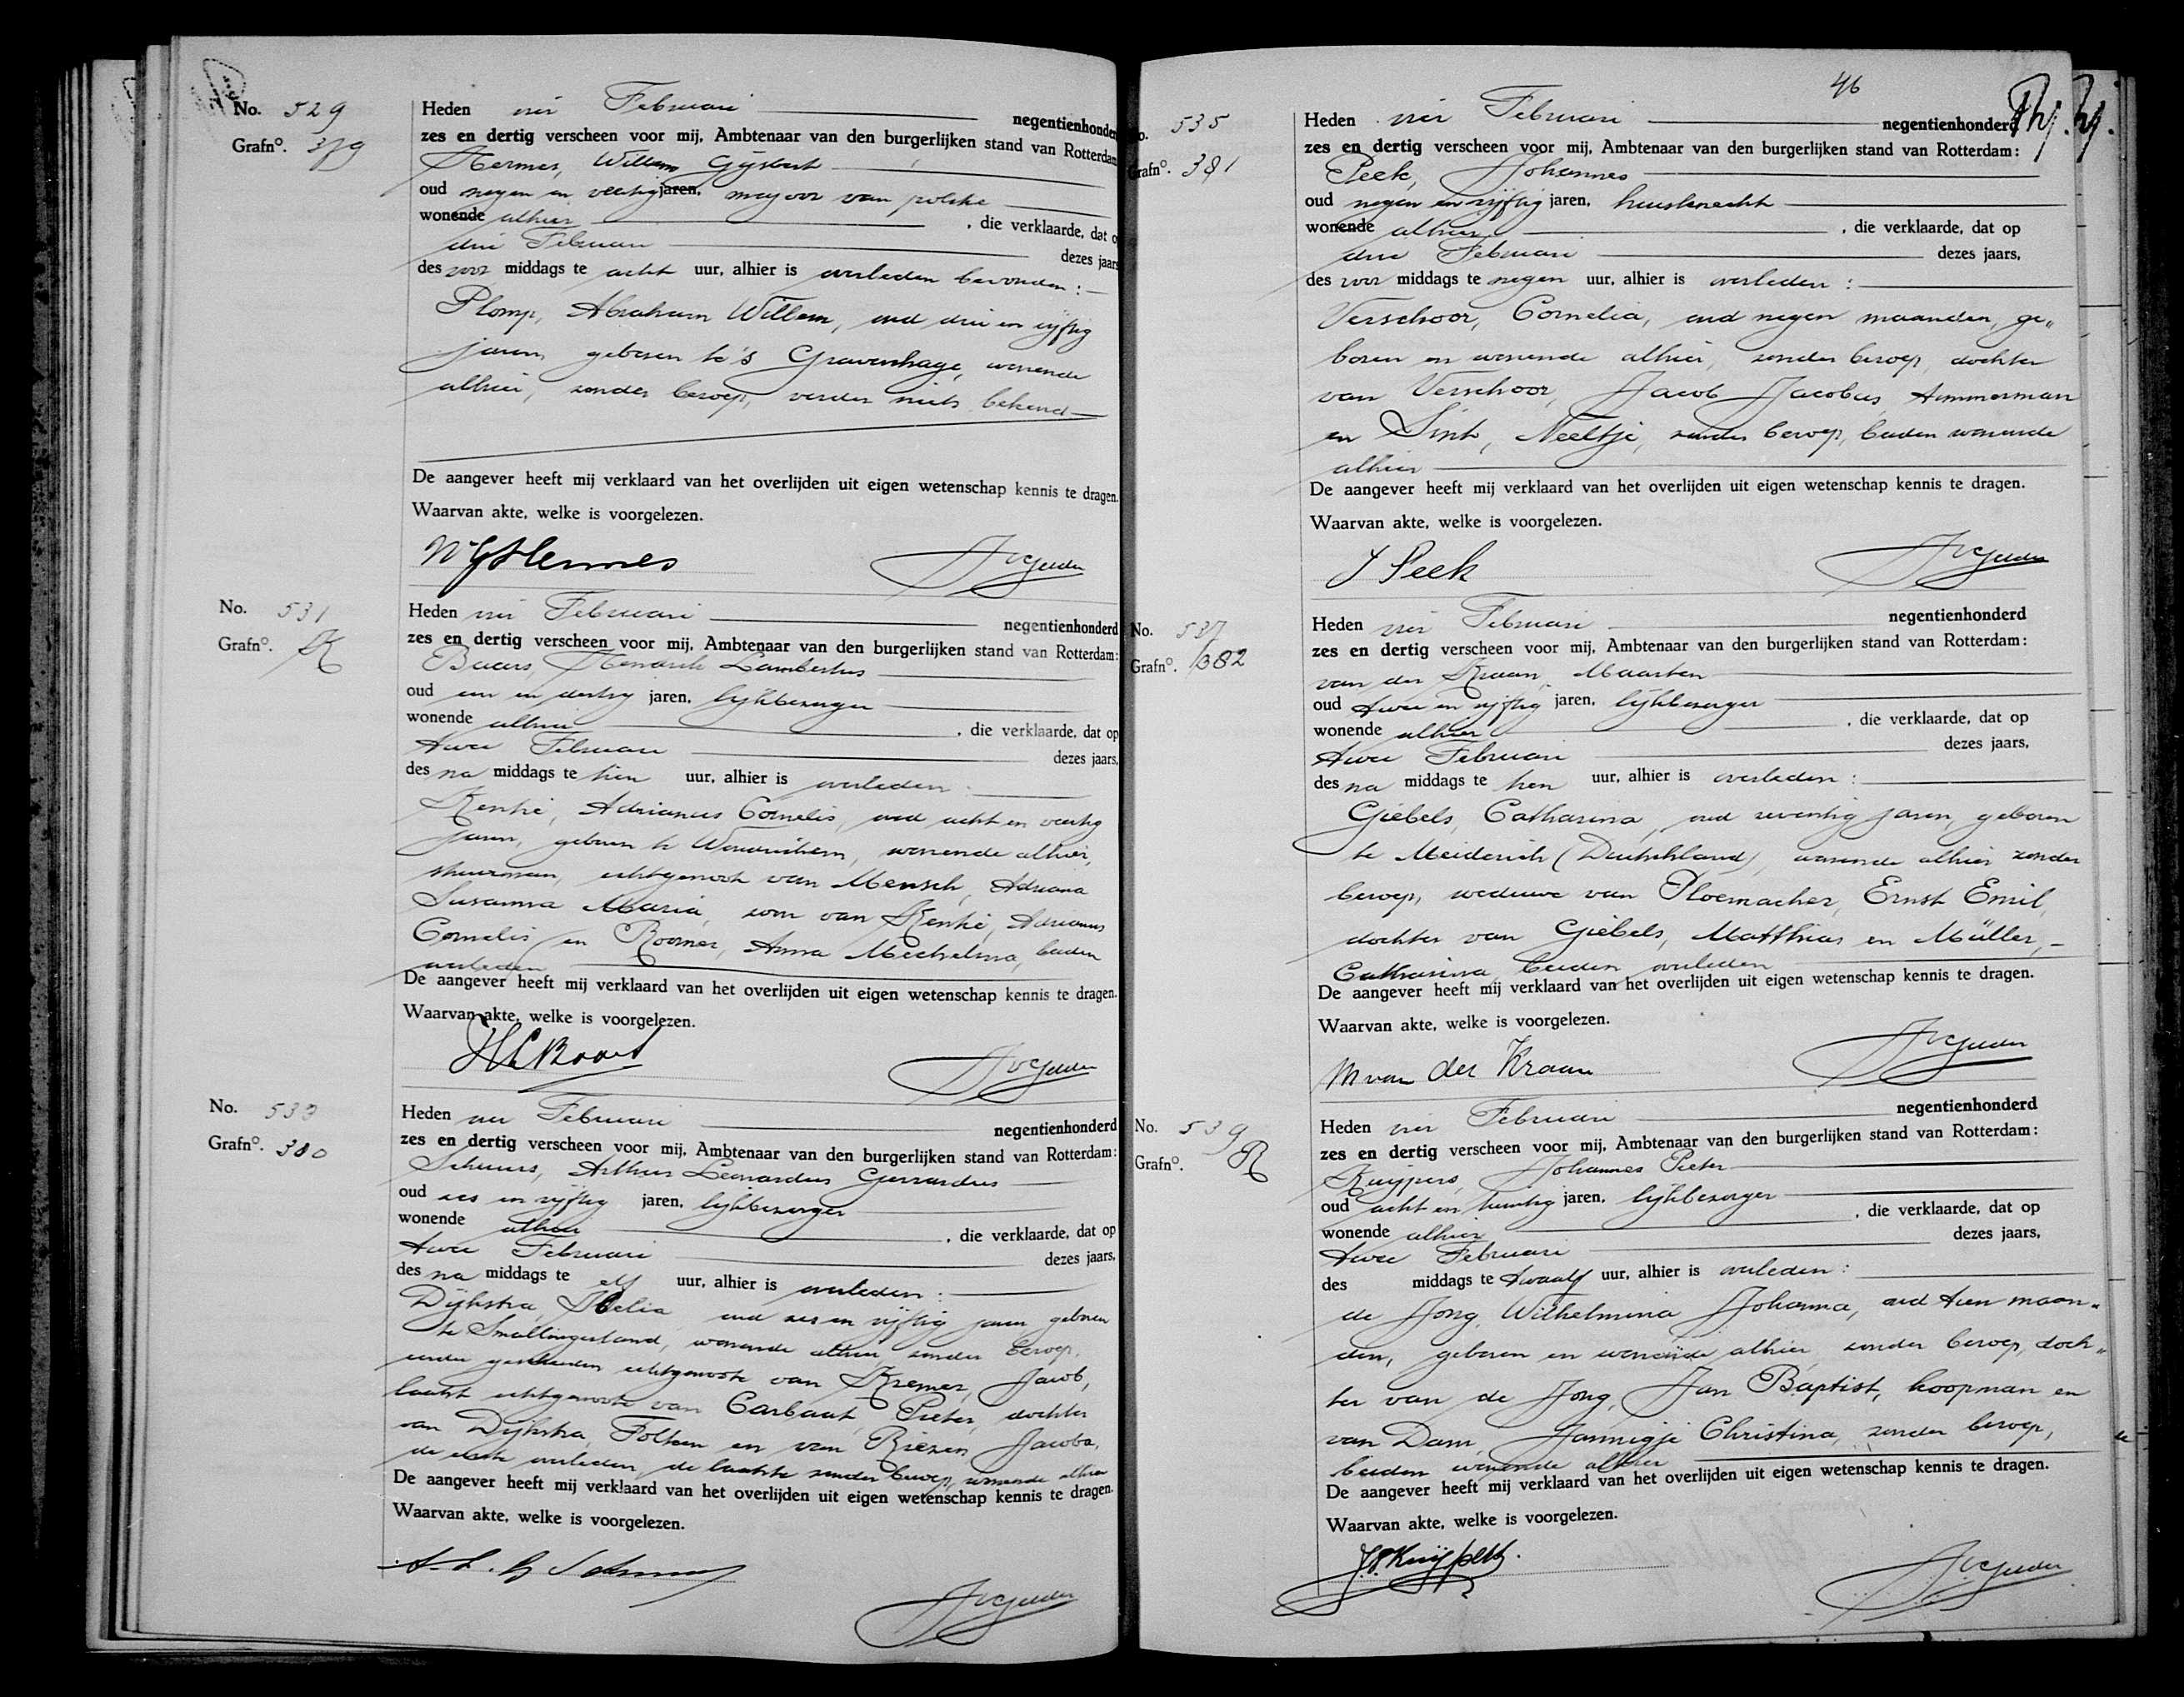 No. 529
Grafno. 379
Heden vier Februari negentienhonderd
zes en dertig verscheen voor mij, Ambtenaar van den burgerlijken stand van Rotterdam
Hermes, Willem Gijsbert
oud negen en veertig jaren, majoor van politie
wonende alhier , die verklaarde, dat op
drie Februari dezes jaars
des voor middags te acht uur, alhier is overleden bevonden :
Plomp, Abraham Willem, oud drie en vijftig
jaren, geboren te 's Gravenhage, wonende
alhier, zonder beroep, verder niets bekend
De aangever heeft mij verklaard van het overlijden uit eigen wetenschap kennis te dragen.
Waarvan akte, welke is voorgelezen.
W G Hermes JvGelder
No. 531
Grafno. R
Heden vier Februari negentienhonderd
zes en dertig verscheen voor mij, Ambtenaar van den burgerlijken stand van Rotterdam:
Hendrik Lambertus
oud een en dertig jaren, lijkbezorger
wonende alhier , die verklaarde, dat op
twee Februari dezes jaars,
des na middags te tien uur, alhier is overleden :
Adrianus Cornelis, oud acht en veertig
jaren, geboren te wonende alhier,
stuurman, echtgenoot van Mensch, Adriana
Susanna Maria, zoon van Adrianus
Cornelis en Roomer, Anna Mechelina, beiden
overleden
De aangever heeft mij verklaard van het overlijden uit eigen wetenschap kennis te dragen.
Waarvan akte, welke is voorgelezen.
JvGelder
No. 533
Grafno. 380
Heden vier Februari negentienhonderd
zes en dertig verscheen voor mij, Ambtenaar van den burgerlijken stand van Rotterdam:
Schuurs, Arthur Leonardus Gerrardus
oud zes en vijftig jaren, lijkbezorger
wonende alhier , die verklaarde, dat op
twee Februari dezes jaars,
des na middags te elf uur, alhier is overleden :
Dijkstra, oud zes en vijftig jaren geboren
te Smallingerland, wonende alhier, zonder beroep,
eerder gescheiden echtgenoote van Kremer, Jacob,
laatst echtgenoote van Carbaat, Pieter, dochter
van Dijkstra, Folken en van Biezen Jacoba,
de eerste overleden, de laatste zonder beroep, wonende alhier
De aangever heeft mij verklaard van het overlijden uit eigen wetenschap kennis te dragen.
Waarvan akte, welke is voorgelezen.
A. L. G Schuurs
JvGelder
46
No. 535
Grafno. 381
Heden vier Februari negentienhonderd
zes en dertig verscheen voor mij, Ambtenaar van den burgerlijken stand van Rotterdam:
Peek, Johannes
oud negen en vijftig jaren, huisknecht
wonende alhier , die verklaarde, dat op
drie Februari dezes jaars,
des voor middags te negen uur, alhier is overleden :
Verschoor, Cornelia, oud negen maanden, ge„
boren en wonende alhier, zonder beroep, dochter
van Verschoor, Jacob Jacobus, timmerman
en Sint, Neeltje, zonder beroep, beiden wonende
alhier
De aangever heeft mij verklaard van het overlijden uit eigen wetenschap kennis te dragen.
Waarvan akte, welke is voorgelezen.
J Peek JvGelder
No. 537
Grafno. 382
Heden vier Februari negentienhonderd
zes en dertig verscheen voor mij, Ambtenaar van den burgerlijken stand van Rotterdam:
van der Kraan, Maarten
oud twee en vijftig jaren, lijkbezorger
wonende alhier , die verklaarde, dat op
twee Februari dezes jaars,
des na middags te tien uur, alhier is overleden :
Giebels, Catharina, oud zeventig jaren, geboren
te Meiderich (Deutschland), wonende alhier zonder
beroep, weduwe van Ploemacher, Ernst Emil,
dochter van Giebels, Matthias en Müller,
Catharina, beiden overleden
De aangever heeft mij verklaard van het overlijden uit eigen wetenschap kennis te dragen.
Waarvan akte, welke is voorgelezen.
M van der Kraan JvGelder
No. 539
Grafno. R
Heden vier Februari negentienhonderd
zes en dertig verscheen voor mij, Ambtenaar van den burgerlijken stand van Rotterdam:
Kuijpers, Johannes Pieter
oud acht en twintig jaren, lijkbezorger
wonende alhier , die verklaarde, dat op
twee Februari dezes jaars,
des middags te twaalf uur, alhier is overleden :
de Jong, Wilhelmina Johanna, oud tien maan„
den, geboren en wonende alhier, zonder beroep, doch„
ter van de Jong, Jan Baptist, koopman en
van Dam, Jannigje Christina, zonder beroep,
beiden wonende alhier
De aangever heeft mij verklaard van het overlijden uit eigen wetenschap kennis te dragen.
Waarvan akte, welke is voorgelezen.
J.P. Kuijpers. JvGelder